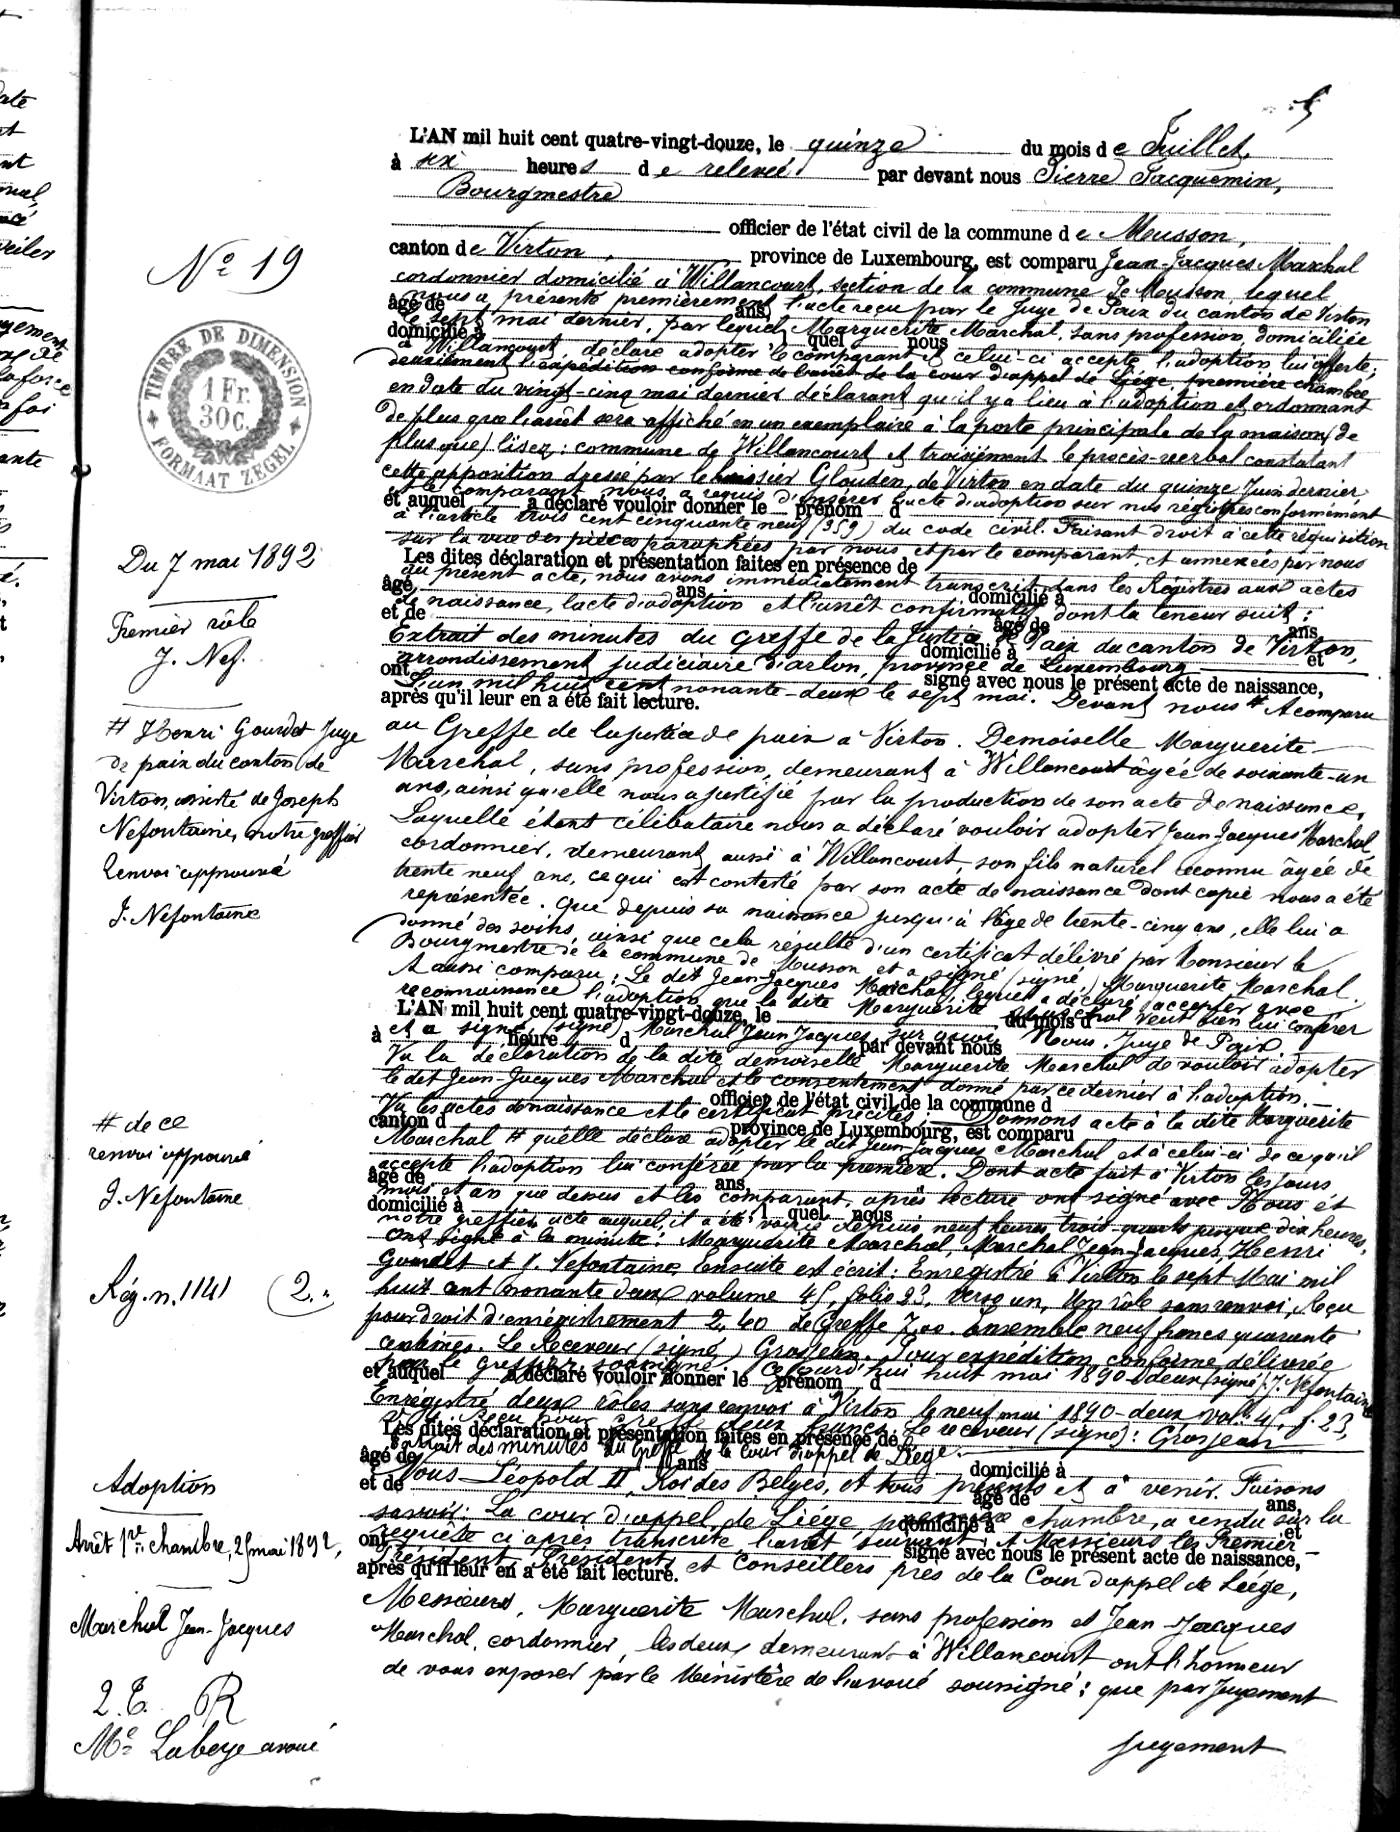 5
L'AN mil huit cent quatre-vingt-douze, le quinze du mois de Juillet,
à six heures de relevée par devant nous Pierre Jacquemin,
Bourgmestre
officier de l'état civil de la commune de Musson,
canton de Virton, province de Luxembourg, est comparu Jean-Jacques Marchal
cordonnier domicilié à Willancourt, section de la commune de Musson, lequel
nous a présenté premièrement l'acte reçu par le Juge de Paix du canton de Virton
âgé de ans,
le sept mai dernier, par lequel Marguerite Marchal, sans profession, domiciliée
domicilié à quel nous
à Willancourt, déclare adopter le comparant et celui-ci accepte l'adoption lui offerte;
deuxièmement l'expédition conforme de l'arrêt de la cour d'appel de Liége, première chambre
en date du vingt-cinq mai dernier déclarant qu'il y a lieu à l'adoption et ordonnant
de plus que l'arrêt sera affiché en un exemplaire à la porte principale de la maison (de
plus que) lisez: commune de Willancourt et troisièment le procès-verbal constatant
cette apposition dressé par le huissier Glouden, de Virton en date du quinze Juin dernier
et le comparant nous a requis d'insérer l'acte d'adoption sur nos registres conformément
et auquel a déclaré vouloir donner le prénom d
à l'article trois cent cinquante neuf (359) du code civil. Faisant droit à cette réquisition
sur la vue des pièces paraphées par nous et par le comparant, et annexées par nous
Les dites déclaration et présentation faites en présence de
au présent acte, nous avons immédiatement transcrit dans les Régistres aux actes
âgé ans domicilié à
de naissance, l'acte d'adoption et l'arrêt confirmatif dont la teneur suit:
et de âgé de ans
Extrait des minutes du Greffe de la Justice de Paix du canton de Virton,
domicilié à et
arrondissement judiciaire d'arlon, province de Luxembourg
ont signé avec nous le présent acte de naissance,
L'an mil huit cent nonante-deux le sept mai. Devant nous # A comparu
après qu'il leur en a été fait lecture.
au Greffe de la justice de paix à Virton. Demoiselle Marguerite
Marchal, sans profession, demeurant à Willancourt âgée de soixante-un
ans, ainsi qu'elle nous a justifié par la production de son acte de naissance,
Laquelle étant célibataire nous a déclaré vouloir adopter Jean-Jacques Marchal
cordonnier, demeurant aussi à Willancourt, son fils naturel reconnu âgée de
trente neuf ans, ce qui est contesté par son acte de naissance dont copie nous a été
représentée. Que depuis sa naissance jusqu'à l'âge de trente-cinq ans, elle lui a
donné des soins, ainsi que cela résulte d'un certificat délivré par Monsieur le
Bourgmestre de la commune de Musson et a signé (signé) Marguerite Marchal.
A aussi comparu: Le dit Jean-Jacques Marchal lequel a déclaré accepter avec
reconnaissance l'adoption que la dite Marguerite Marchal veut bien lui conférer
L'AN mil huit cent quatre-vingt-douze, le du mois d
et a signé, (signé) Marchal Jean Jacques, sur quoi Nous, Juge de Paix
à heure d par devant nous
Vu la déclaration de la dite demoiselle Marguerite Marchal de vouloir adopter
le dit Jean-Jacques Marchal et le consentement donné par ce dernier à l'adoption.
officier de l'état civil de la commune d
Vu les actes de naissance et le certificat précités: Donnons acte à la dite Marguerite
canton d province de Luxembourg, est comparu
Marchal # qu'elle déclare adopter le dit Jean Jacques Marchal et à celui-ci de ce qu'il
accepte l'adoption lui conférée par la première. Dont acte fait à Virton les jours
âgé de ans,
mois et an que dessus et les comparant, après lecture ont signé avec Nous et
domicilié à l quel nous
notre greffier, acte auquel, il a été vaqué depuis neuf heures trois quarts jusque dix heures.
Ont signé à la minute: Marguerite Marchal, Marchal Jean-Jacques, Henri
Gourdet et J. Nefontaine, Ensuite est écrit: Enregistré à Virton le sept Mai mil
huit cent nonante deux volume 45, folio 23, verso un, Un rôle sans renvoi, Reçu
pour droit d'enrégistrement 2,40 de Greffe 7,00. Ensemble neuf francs quarante
centimes. Le Receveur (signé) Grosjean. Pour expédition conforme délivrée
par le greffier soussigné. Ce jourd'hui huit mai 1890-deux (signé) J. Nefontaine
et auquel a déclaré vouloir donner le prénom d
Enrégistré deux rôles sans renvoi à Virton le neuf mai 1890-deux vol. 45, f. 23,
Reçu pour greffe deux francs Le receveur (signé): Grosjean
Les dites déclaration et présentation faites en présence de
Extrait des minutes du Greffe de la cour d'appel de Liége.
âgé de ans domicilié à
Nous Léopold II, Roi des Belges, et tous présents et à venir. Faisons
et de âgé de ans,
savoir: La cour d'appel de Liége première chambre, a rendu sur la
domicilié à et
requête ci après transcrite l'arrêt suivant: A Messieurs les Premier
ont signé avec nous le présent acte de naissance,
Président, Président et Conseillers près de la Cour d'appel de Liége,
après qu'il leur en a été fait lecture.
Messieurs, Marguerite Marchal, sans profession et Jean-Jacques
Marchal, cordonnier, les deux demeurant à Willancourt ont l'honneur
de vous exposer par le Ministère de l'avoué soussigné: que par Jugement
jugement
No 19
TIMBRE DE DIMENSION
1 Fr.
30 c.
FORMAAT ZEGEL
Du 7 mai 1892
Premier rôle
J. Nef.
# Henri Gourdet Juge
de paix du canton de
Virton, assisté de Joseph
Nefontaine, notre greffier
Renvoi approuvé
J. Nefontaine
# de ce
renvoi approuvé
J. Nefontaine
Rég. n. 1141 (2.
Adoption
Arrêt 1re chambre, 25 mai 1892,
Marchal Jean-Jacques
Me Labeye avoué